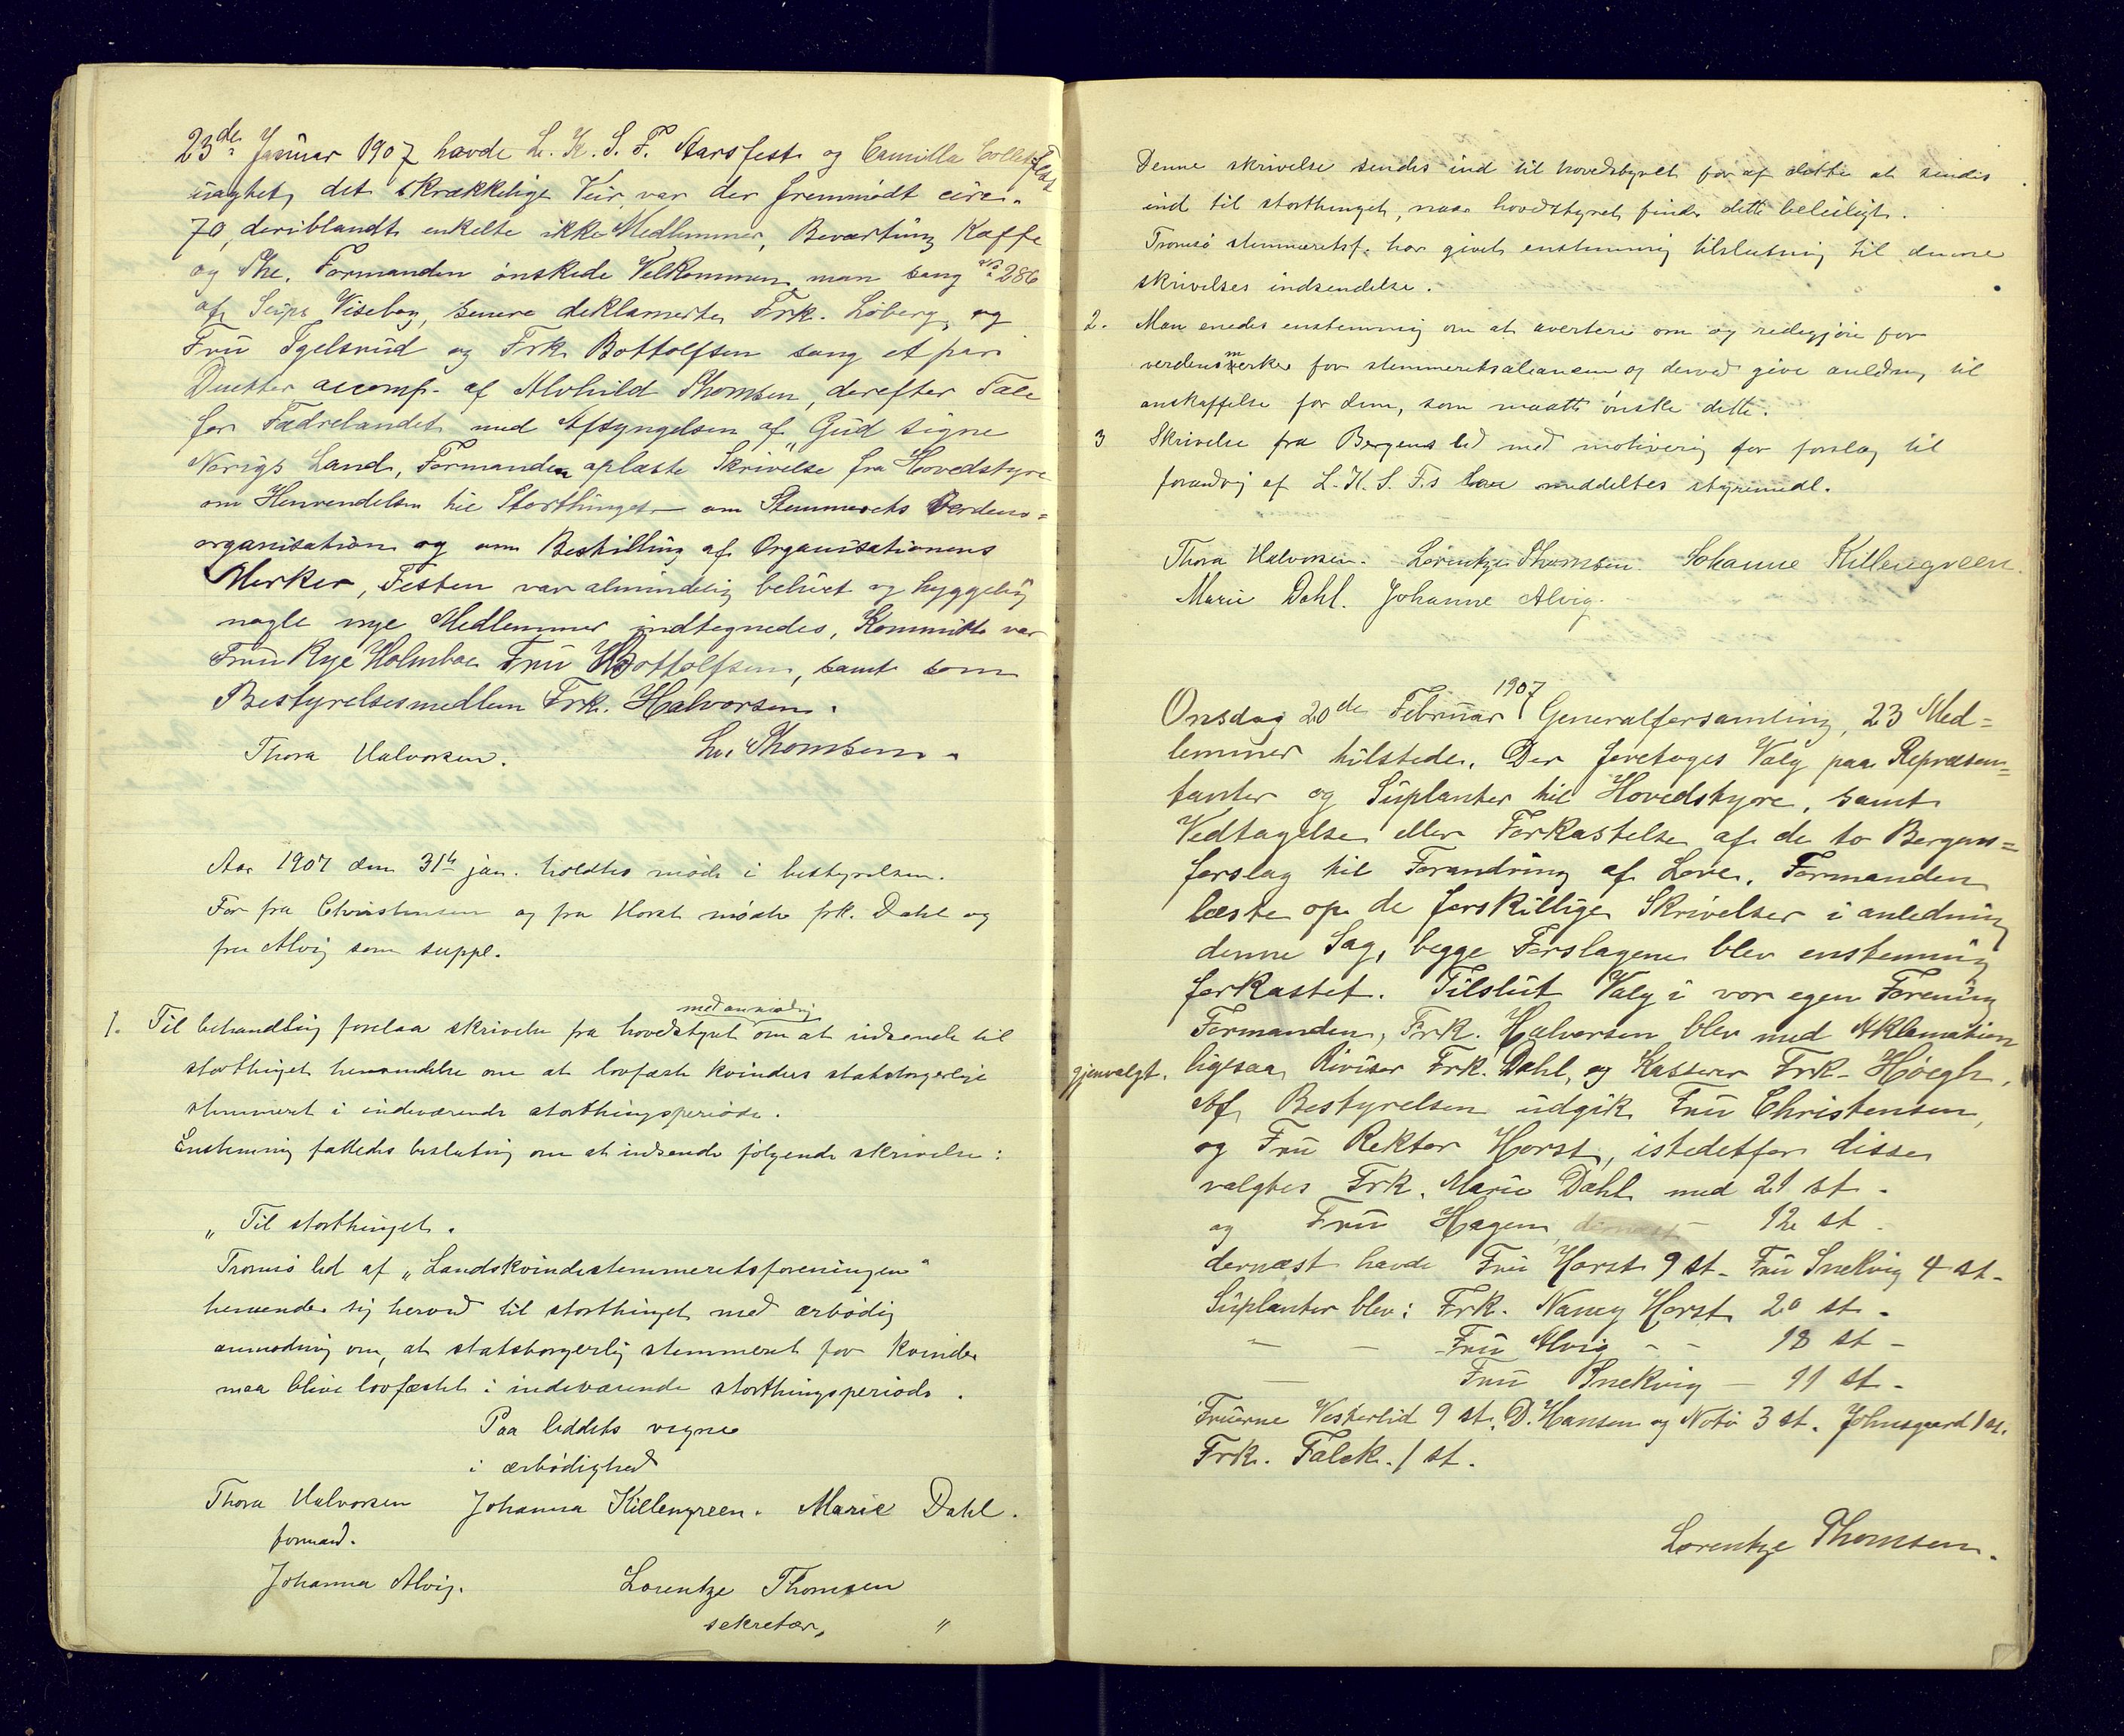 23de Januar 1907 havde L. K. S. F. Aarsfest og Camilla Collet-Fest
uagtet det skrækkelige Veir var der fremmødt circa
70, deriblandt enkelte ikke Medlemmer, Beværtning Kaffe
og The. Formanden ønskede Velkommen, man sang No 286
af Seips Visebog, senere deklamerte Frk. Löberg, og
Fru Igelsrud og Frk. Bottolfsen sang et par
Duetter accomp. af Alvhild Thomsen, derefter Tale
for Fædrelandet med Afsyngelsen af „Gud signe
Norigs Land, Formanden oplæste Skrivelse fra Hovedstyre
om Henvendelsen til Storthinget – om Stemmerets Verdens=
organisation og om Bestilling af Organisationens
Merker, Festen var almindelig belivet og hyggelig
nogle nye Medlemmer indtegnedes, Kommitte var
Fru Rye Holmboe Fru Bottolfsen, samt som
Bestyrelsesmedlem Frk. Halvorsen.
Thora Halvorsen. Lor. Thomsen.
Aar 1907 den 31te jan. holdtes møde i bestyrelsen.
For fru Christensen og fru Horst mødte frk. Dahl og
fru Alvig som suppl.
1. Til behandling forelaa skrivelse fra hovedstyret med anmodning om at indsende til
storthinget henvendelse om at lovfæste kvinders statsborgerlige
stemmeret i indeværende storthingsperiode.
Enstemmig fattedes beslutning om at indsende følgende skrivelse:
„Til storthinget.
Tromsö led af „Landskvindestemmeretsforeningen“
henvender sig herved til storthinget med ærbödig
anmodning om, at statsborgerlig stemmeret for kvinder
maa blive lovfæstet i indeværende storthingsperiode.
Paa leddets vegne
i ærbödighed
Thora Halvorsen Johanna Killengreen. Marie Dahl.
formand.
Johanna Alvig. Lorentze Thomsen
sekretær. "
Denne skrivelse sendes ind til hovedstyret for af dette at sendes
ind til storthinget, naar hovedstyret finder dette beleiligt.
Tromsö stemmeretsf. har givet enstemmig tilslutning til denne
skrivelses indsendelse.
2. Man enedes enstemmig om at avertere om og redegjøre for
verdensmerket for stemmeretsaliancen og derved give anledning til
anskaffelse for dem, som maatte ønske dette.
3 Skrivelse fra Bergens led med motivering for forslag til
forandring af L. K. S. F.s love meddeltes styremedl.
Thora Halvorsen. Lorentze Thomsen. Johanne Killengreen.
Marie Dahl. Johanne Alvig.
Onsdag 20de Februar 1907 Generalforsamling, 23 Med=
lemmer tilstede. Der foretoges Valg paa Repræsen=
tanter og Suplanter til Hovedstyre, samt
Vedtagelse eller Forkastelse af de to Bergens=
forslag til Forandring af Love. Formanden
læste op de forskillige Skrivelser i anledning
denne Sag, begge Forslagene blev enstemmig
forkastet. Tilslut Valg i vor egen Forening
Formanden, Frk. Halvorsen blev med Aklamation
gjenvalgt. ligesaa Revisor Frk. Dahl, og Kasserer Frk. Höegh.
Af Bestyrelsen udgik Fru Christensen,
og Fru Rektor Horst, istedetfor disse
valgtes Frk. Marie Dahl med 21 st.
og Fru Hagen – 12 st.
dernæst havde Fru Horst 9 st. Fru Snekvig 4 st.
Suplanter blev: Frk. Nancy Horst 20 st.
– – Fru Alvig – – 18 st –
– Fru Snekvig – 11 st.
Fruerne Vesterlid 9 st. D. Hansen og Notö 3 st. Johnsgaard 1 st.
Frk. Falck. 1 st.
Lorentze Thomsen.